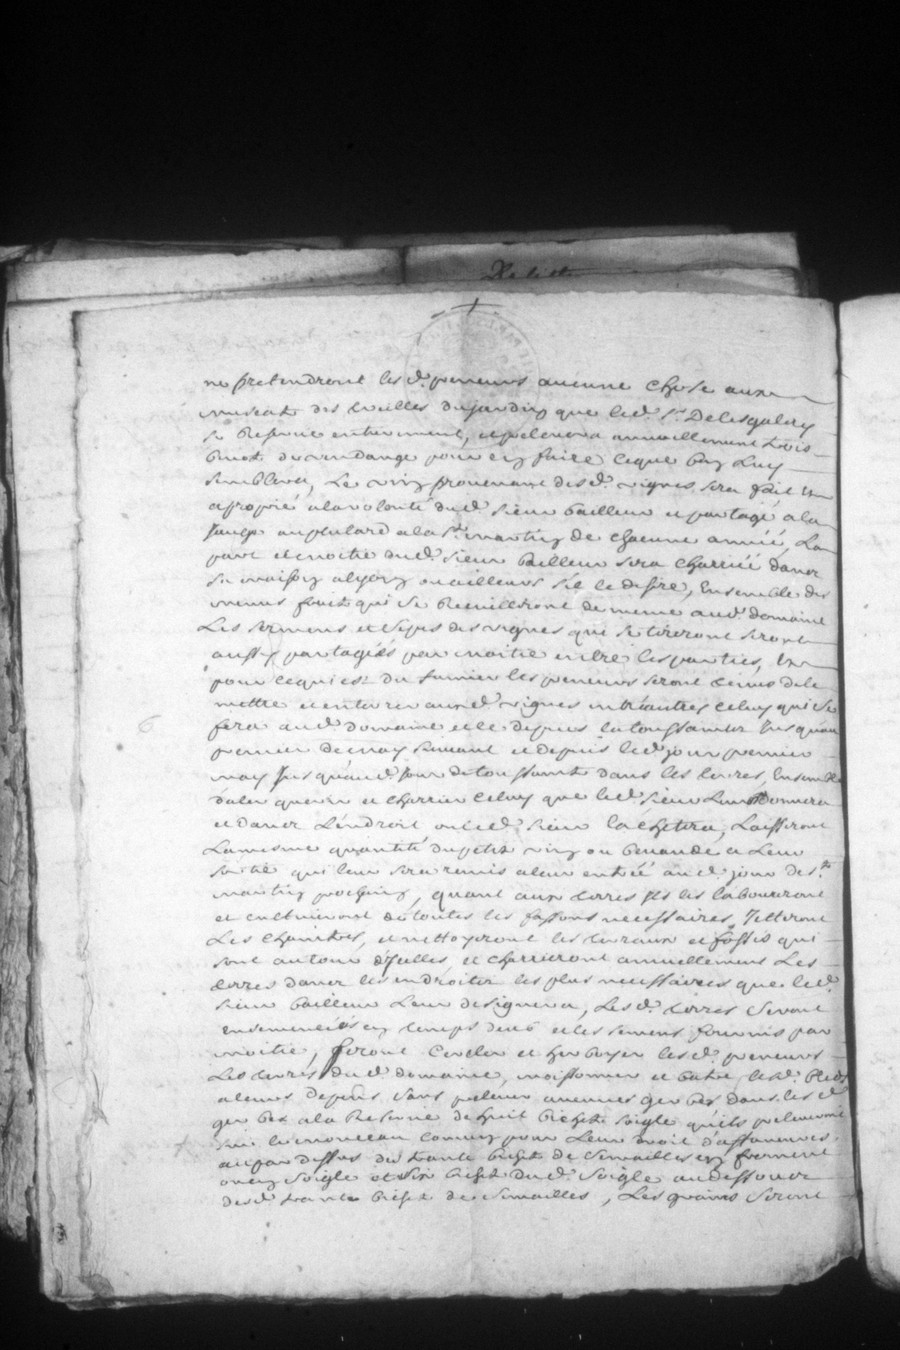 ne pretendront les d. preneurs aucune chose aux
muscats des treilles du jardin que led. sr Delesgallery
se Reserve entierement, et prelevera annuellement trois
benot de vendange pour en faire ceque bon Luy
semblera, Le vin provenant desd. vignes sera fait Un
aproprié a la volonté dud. sieur bailleur et partagé a la
jauge au plutard a la St. martin de chacune année, La
part et moitié dud. sieur Bailleur sera charriée dans
sa maison a lyon ou ailleurs sil le desire, Ensemble des
menus fruits qui se Recuilliront de meme aud. domaine
Les sermens et seps des vignes qui se tireront seront
aussy partagés par moitie entre les parties, Un
pour cequi est du fumier les preneurs seront tenus de le
mettre et enterrer auxd. vignes entréautres celuy qui se
fera aud. domaine et ce depuis la toussaints Jusquau
premier de may suivant et depuis led. jour premier
may Jusquaud. Jour de toussaint dans les terres, Ensemble
daler querir et charrier celuy que led. sieur Leur Donnera
et dans Léndroit ou led. sieur lachetera, Laisseront
La mesme quantité du petit vin ou buvande a Leur
sortie qui leur sera remis a leur entrée au d. jour de St.
martin prochain, quant aux terres ils les laboureront
et cultiveront de toutes les fassons necessaires, Jetteront
Les chaintres, et nettoyeront les terraux et fossés qui
sont autour dicelles, et charrieront annuellement Les
terres dans les endroits les plus necessaires que led.
sieur bailleur Leur designera, Les d. terres seront
ensemencées en temps deu et les semens fournis par
moitie, feront cercler et herboyer les d. preneurs
Les terres dud. domaine, moissonner et batre les d. Bleds
a leurs depens sans prelever aucunes gerbes dans les d.
gerbes a la Reserve de huit bichets soigle quils preleveront
sur le monceau commun pour Leur droit d'affanures
au par dessus de trante bichets de semailles en froment
ou en soigle et six bichets dud. soigle au dessous
des d. trante bichets de semailles, Les grains seront